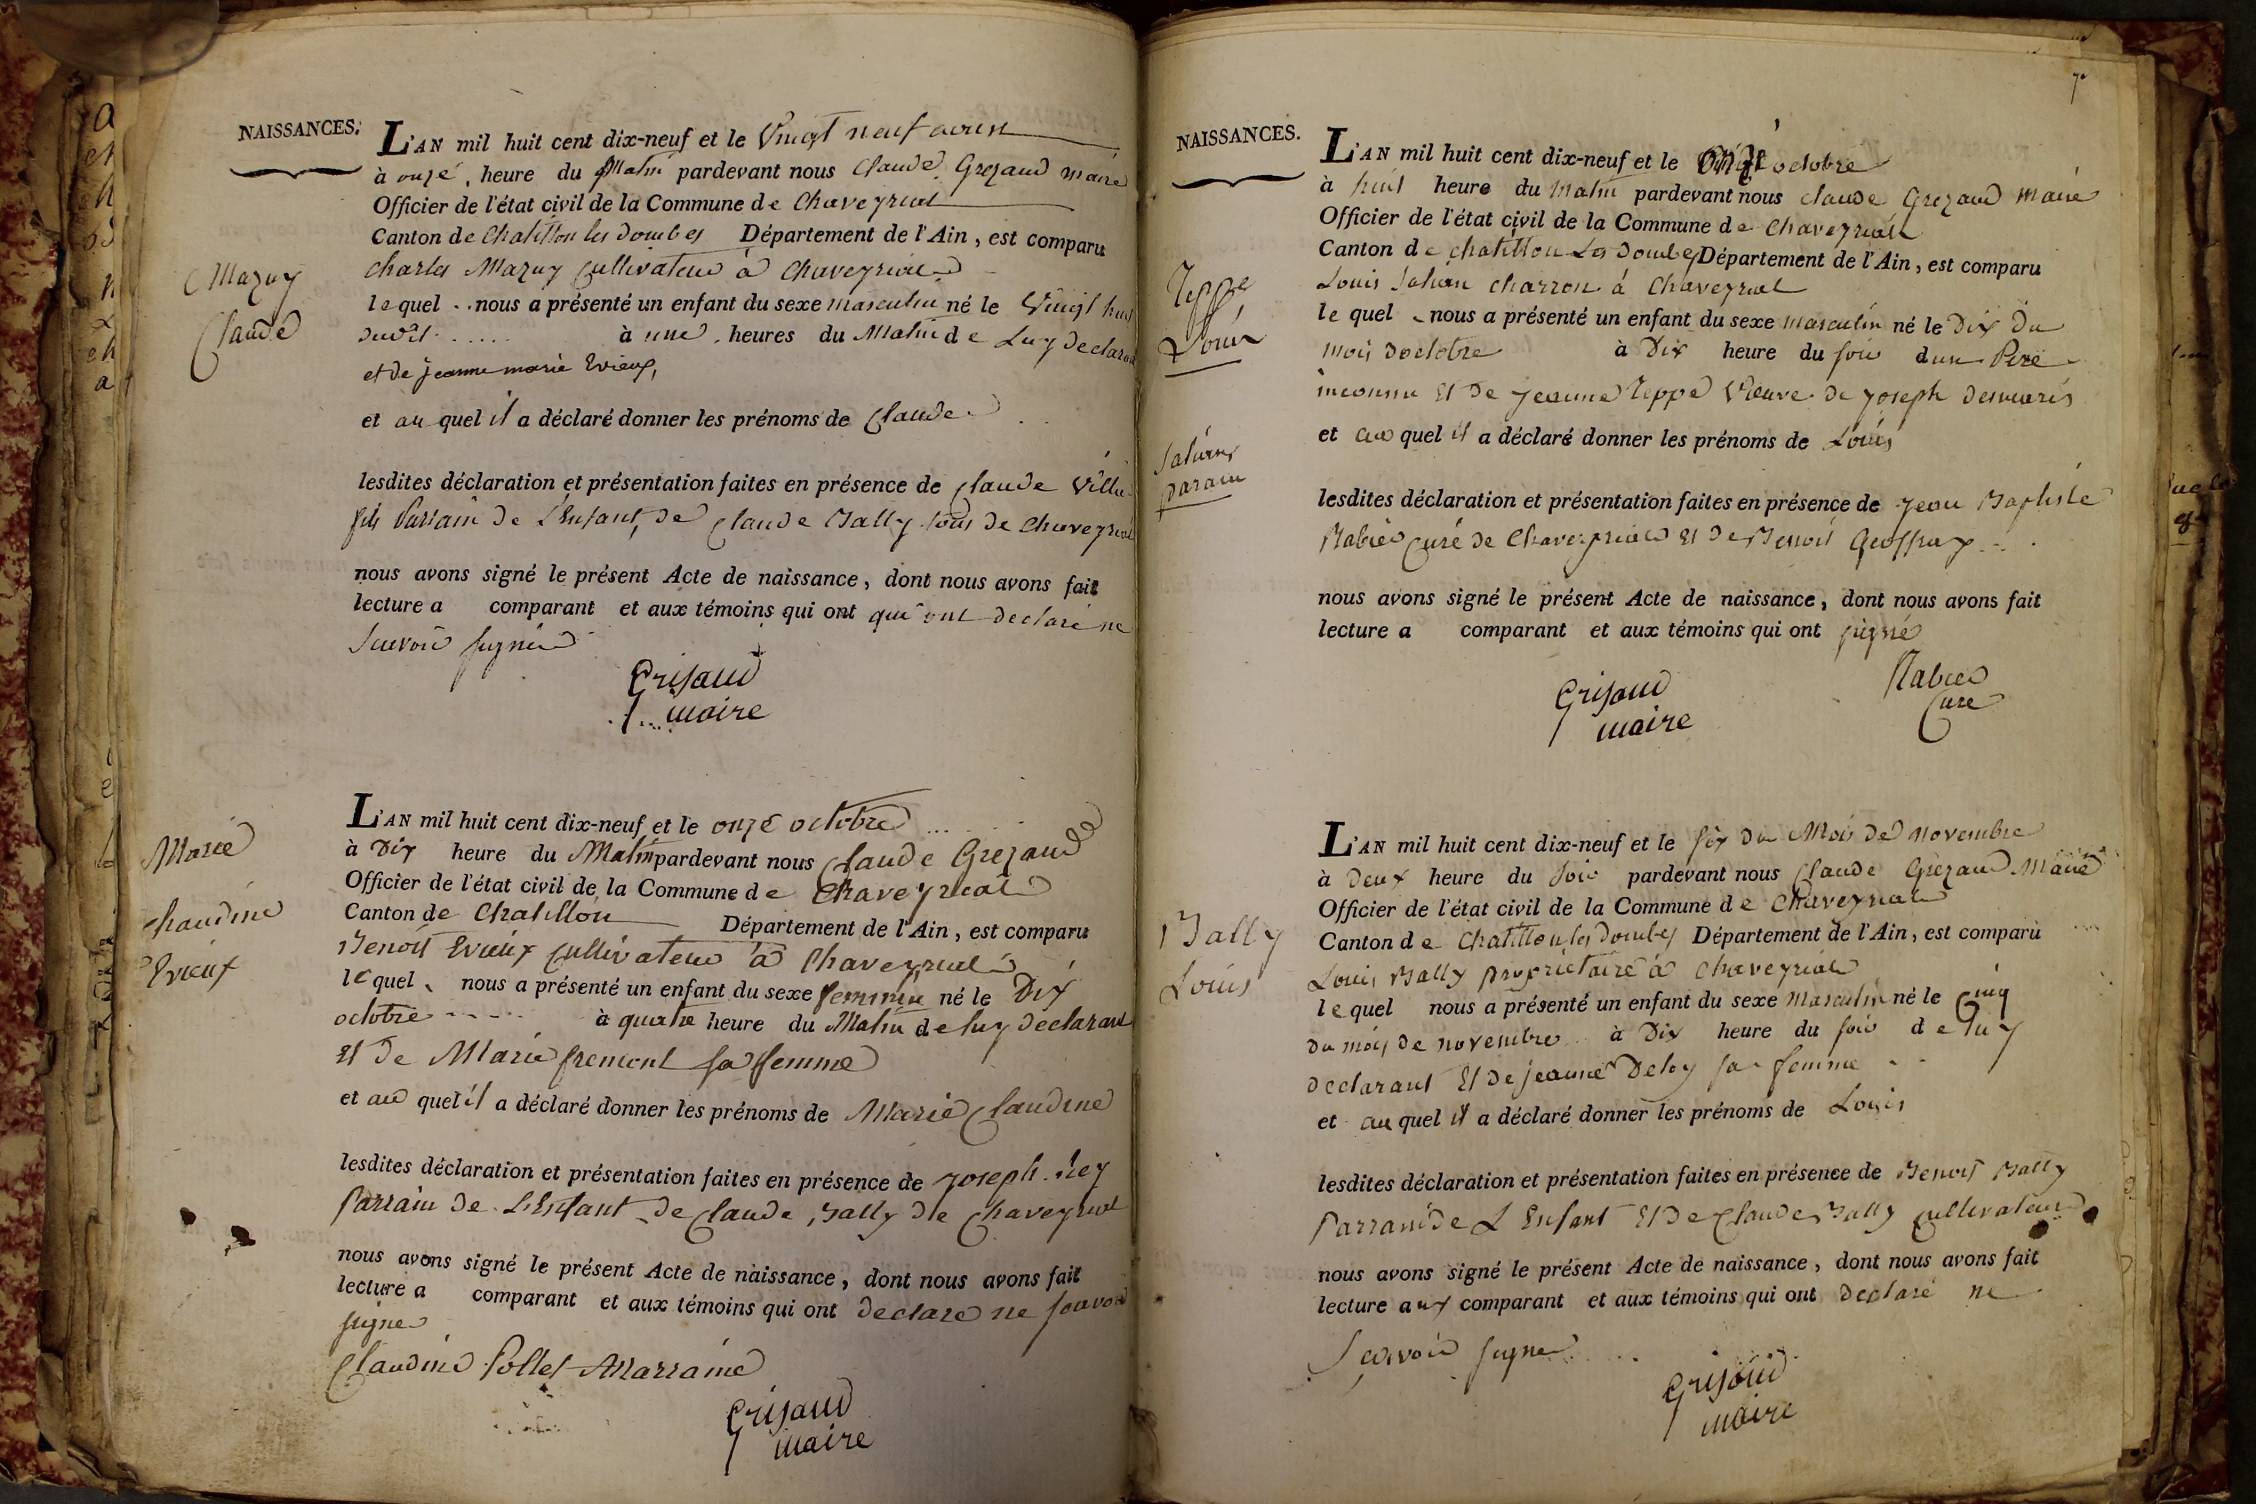 NAISSANCES.
L'AN mil huit cent dix-neuf et le Vingt neuf aoust
à onze, heure du Matin pardevant nous Claude Grezaud maire
Officier de l'état civil de la Commune de Chaveyriat
Canton de Chatillon les Dombes Département de l'Ain, est comparu
Charles Mazuy Cultivateur à Chaveyriat
Mazuy
Claude
lequel nous a présenté un enfant du sexe masculin né le Vingt huit
dudit à une heures du Matin de Luy declarant
et de jeanne marie Evieux,
et au quel il a déclaré donner les prénoms de Claude
lesdites déclaration et présentation faites en présence de Claude
fils Parrain de L'Enfant, de Claude Bally tous de Chaveyriat
nous avons signé le présent Acte de naissance, dont nous avons fait
lecture a comparant et aux témoins qui ont qui ont declaré ne
Scavoir signer
Grisaud
maire
L'AN mil huit cent dix-neuf et le onze octobre
à Dix heure du Matin pardevant nous Claude Grezaud
Officier de l'état civil de la Commune de Chaveyriat
Canton de Chatillon Département de l'Ain, est comparu
Benoit Evieux Cultivateur à Chaveyriat
Marie
Claudine
Evieux
lequel nous a présenté un enfant du sexe feminin né le Dix
octobre à quatre heure du Matin de luy declarant
Et de Marie frement sa femme
et au quel il a déclaré donner les prénoms de Marie Claudine
lesdites déclaration et présentation faites en présence de joseph Rey
Parrain de L'Enfant de Claude Bally de Chaveyriat
nous avons signé le présent Acte de naissance, dont nous avons fait
lecture a comparant et aux témoins qui ont declare ne scavoir
signer
Claudine Pollet Marraine
Grisaud
maire
7
NAISSANCES.
L'AN mil huit cent dix-neuf et le onze octobre
à huit heure du Matin pardevant nous Claude Grezaud Maire
Officier de l'état civil de la Commune de Chaveyriat
Canton de Chatillon Les Dombes Département de l'Ain, est comparu
Louis charron à Chaveyriat
Teppe
Louis
le quel nous a présenté un enfant du sexe masculin né le Dix Du
mois Doctobre à Dix heure du soir dun Pere
inconnu Et De jeanne Teppe Veuve de joseph desmaris
et au quel il a déclaré donner les prénoms de Louis
parain
lesdites déclaration et présentation faites en présence de jean Baptiste
Rabier Curé de Chaveyriat Et de Benoit Geoffray
nous avons signé le présent Acte de naissance, dont nous avons fait
lecture a comparant et aux témoins qui ont signé
Grisaud
maire
Rabier
Curé
L'AN mil huit cent dix-neuf et le six du Mois de novembre
à Deux heure du soir pardevant nous Claude Grezaud Maire
Officier de l'état civil de la Commune de Chaveyriat
Canton de Chatillon les Dombes Département de l'Ain, est comparu
Louis Bally propriétaire à Chaveyriat
Bally
Louis
lequel nous a présenté un enfant du sexe Masculin né le Cinq
du mois de novembre à Dix heure du soir de luy
declarant Et De jeanne sa femme
et au quel il a déclaré donner les prénoms de Louis
lesdites déclaration et présentation faites en présence de Benoit Bally
Parrain de L'Enfant Et De Claude Bally Cultivateur
nous avons signé le présent Acte de naissance, dont nous avons fait
lecture aux comparant et aux témoins qui ont déclaré ne
Scavoir signer
Grisaud
maire